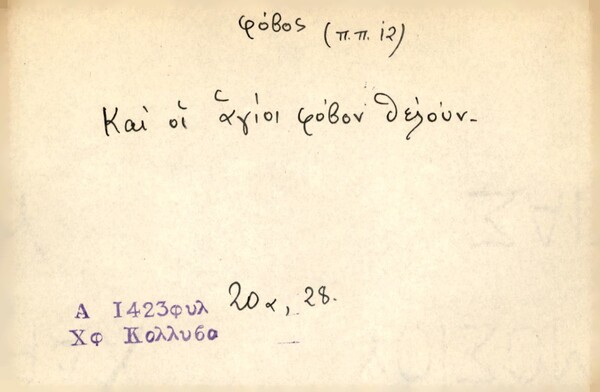 φόβος (π.π. 12)
Καὶ οἱ ἅγιοι φόβον θελούν.
Α 1423φυλ 20α, 28.
Χφ Κολλυβα